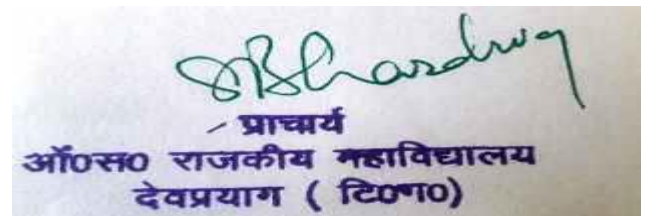 SBhardwaj
प्राचार्य
ऑ0स0 राजकीय महाविद्यालय
देवप्रयाग ( टि0ग0)